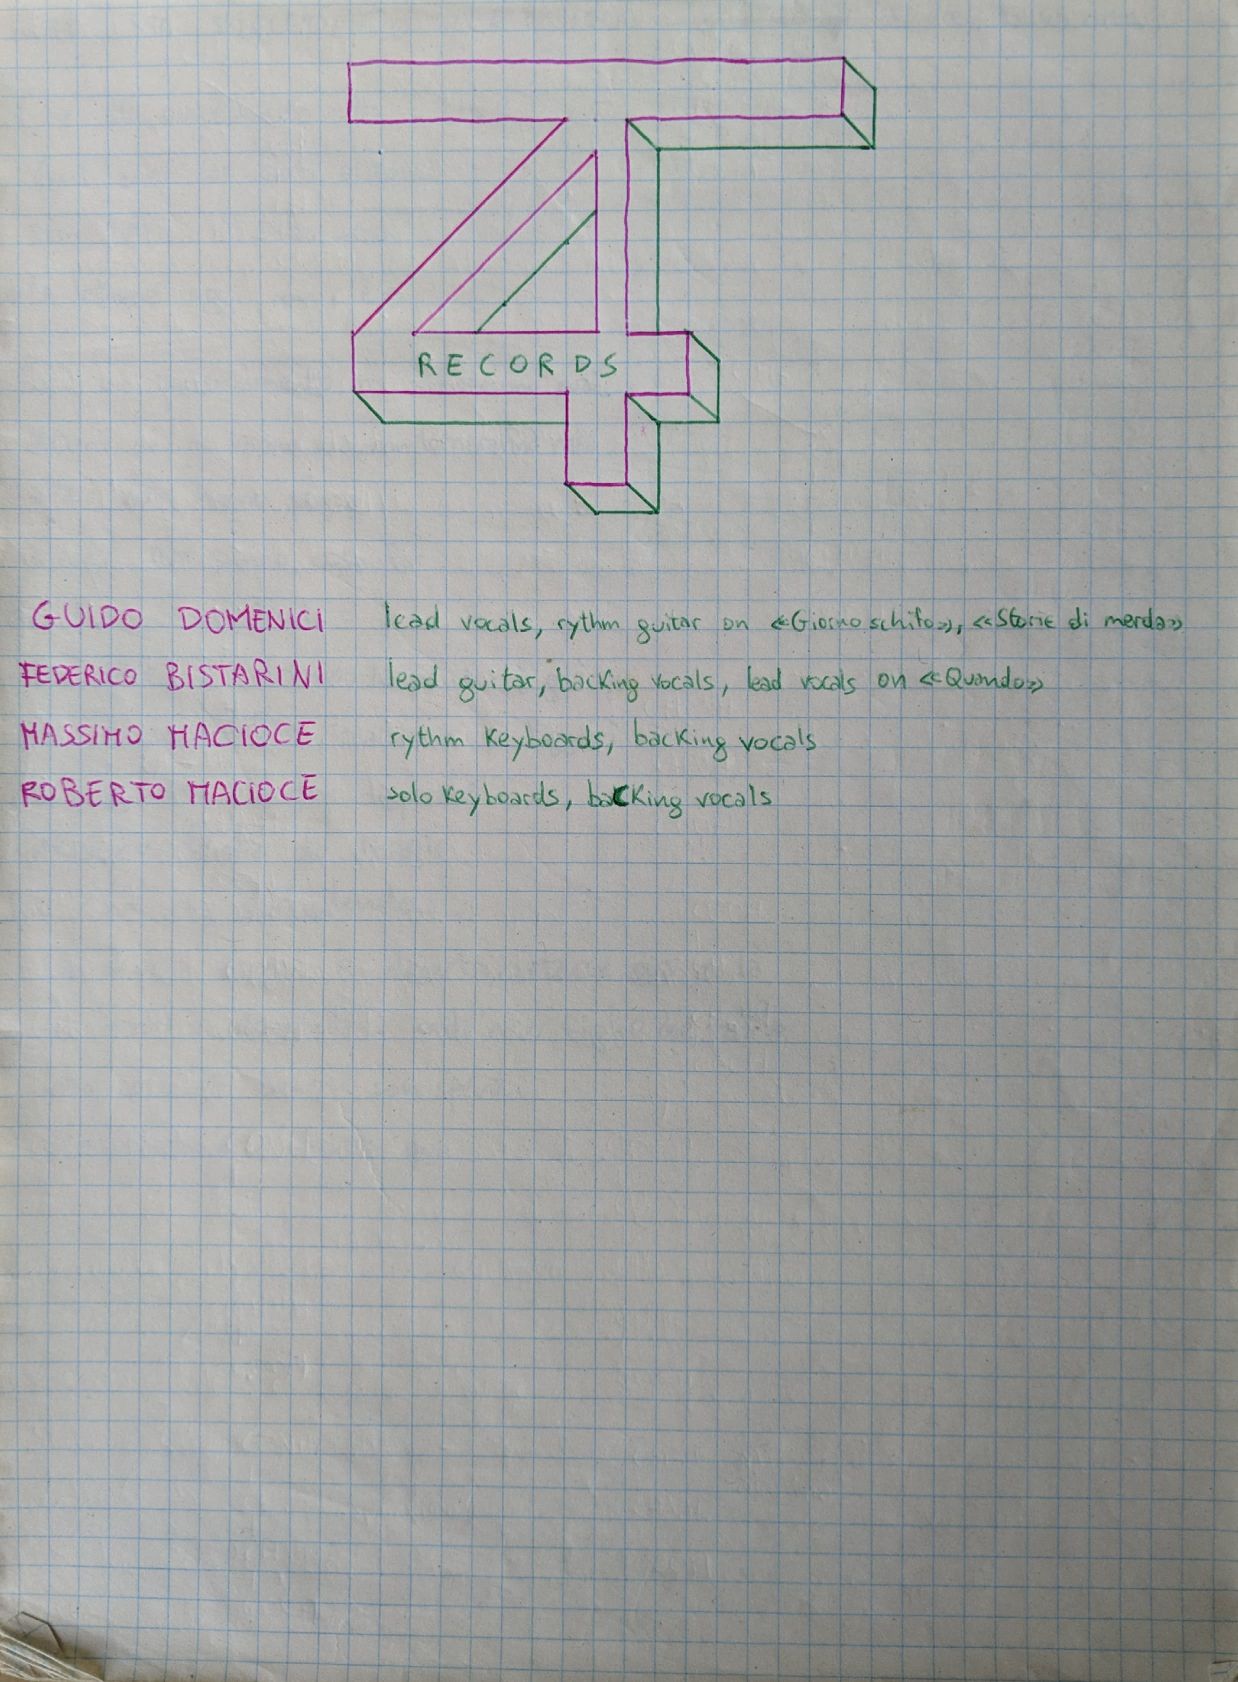 4T
RECORDS
GUIDO DOMENICI lead vocals, rythm guitar on «Giorno schifo», «Storie di merda»
FEDERICO BISTARINI lead guitar, backing vocals, lead vocals on «Quando»
MASSIMO MACIOCE rythm Keyboards, backing vocals
ROBERTO MACIOCE solo Keyboards, backing vocals